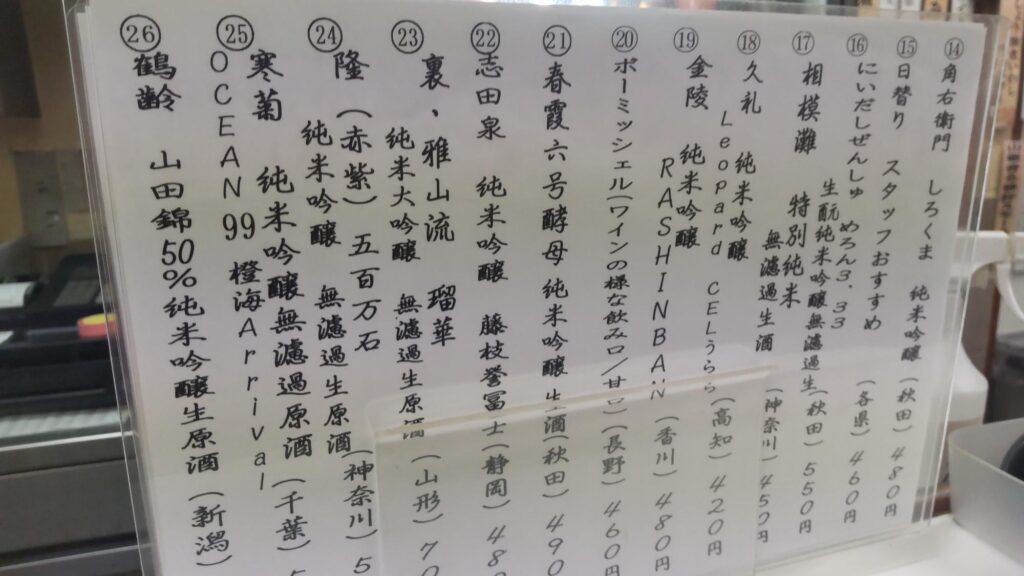 ⑭ 角右衛門 しろくま 純米吟醸 (秋田) 480円
⑮ 日替り スタッフおすすめ (各県) 460円
⑯ にいだしぜんしゅ めろん3.33
生酛純米吟醸無濾過生 (秋田) 550円
⑰ 相模灘 特別純米
無濾過生酒 (神奈川) 450円
⑱ 久礼 純米吟醸
Leopard CELうらら (高知) 420円
⑲ 金陵 純米吟醸
RASHINBAN (香川) 480円
⑳ ボーミッシェル(ワインの様な飲み口/甘口)(長野) 460円
㉑ 春霞六号酵母 純米吟醸 生酒(秋田) 490
㉒ 志田泉 純米吟醸 藤枝誉富士(静岡) 48
㉓ 裏、雅山流 瑠華
純米大吟醸 無濾過生原酒 (山形) 70
㉔ 隆(赤紫) 五百万石
純米吟醸 無濾過生原酒(神奈川) 5
㉕ 寒菊 純米吟醸無濾過原酒 (千葉)
OCEAN99 橙海Arrival
㉖ 鶴齢 山田錦50%純米吟醸生原酒(新潟)